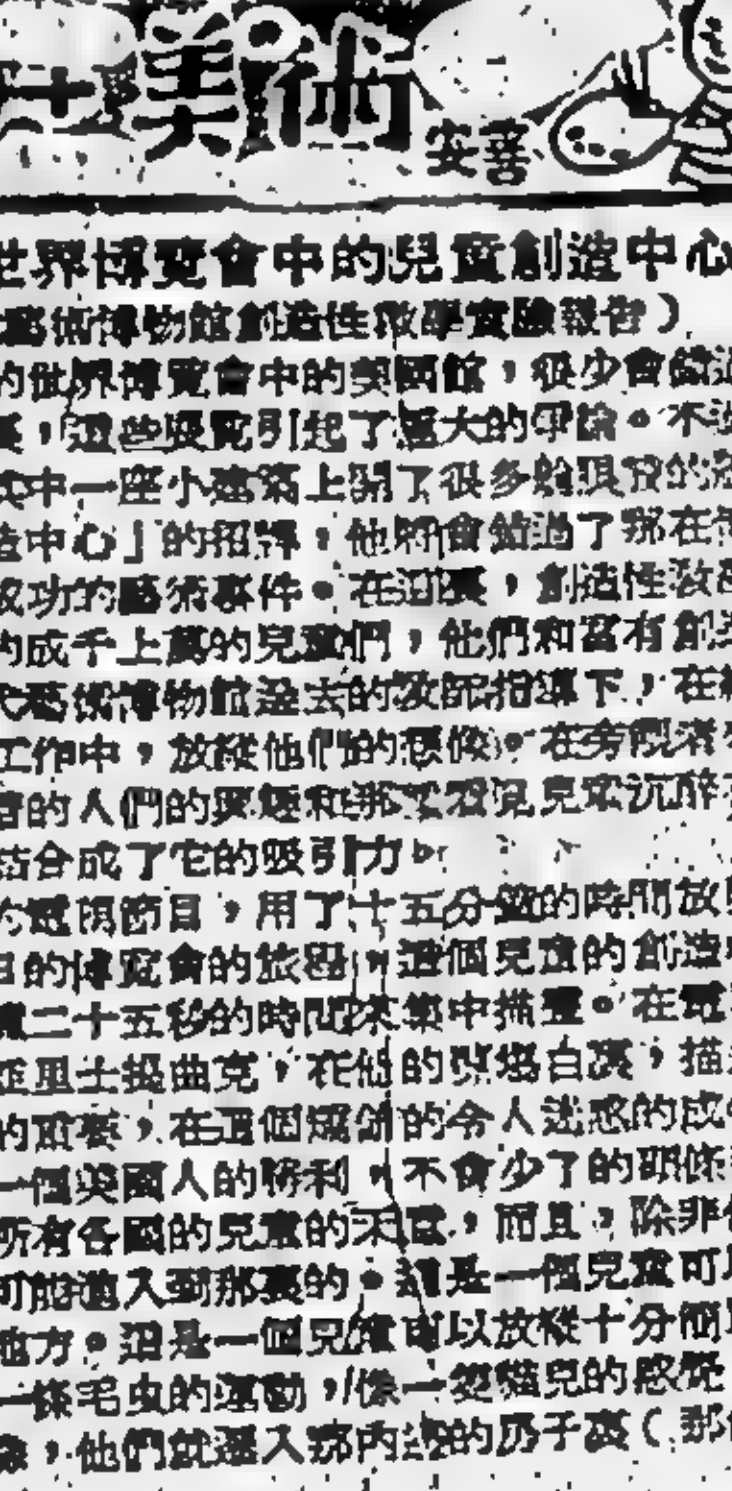 美術
安喜
世界博覽會中的兒童創造中心
藝術博物館創造性教學實驗報告）
的世界博覽會中的美國館，很少會錯過
，這些展覽引起了重大的爭論。不
其中一座小建築上開了很多的
造中心」的招牌，他將會錯過了那在
成功的藝術事件。在這裏，創造性教
的成千上萬的兒童們，他們和富有創造
代藝術博物館過去的教師指導下，在
工作中，放縱他們的想像。在旁觀者
的人們的興趣和那些看見兒童沉醉
結合成了它的吸引力。
的電視節目，用了十五分鐘的時間放
目的博覽會的旅程，這個兒童的創造
二十五秒的時間來集中描畫。在電
亞里士提曲克，在他的開場白裏，描
的前奏，在這個的令人迷惑的成
一個美國人的勝利，不會少了的
所有各國的兒童的天國，而且，除非
可能進入到那裏的。這是一個兒童可
地方。這是一個兒童可以放縱十分簡
一條毛虫的運動，像一隻貓兒的感覺
，他們就進入那內邊的房子裏（那